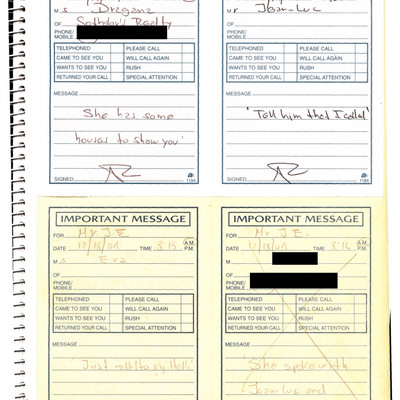 M s Dragana
OF Sotheby's Realty
PHONE/
MOBILE
TELEPHONED PLEASE CALL
CAME TO SEE YOU WILL CALL AGAIN
WANTS TO SEE YOU RUSH
RETURNED YOUR CALL SPECIAL ATTENTION
MESSAGE
She has some
houses to show you'
SIGNED
1184
M R Jean-Luc
OF
PHONE/
MOBILE
TELEPHONED PLEASE CALL
CAME TO SEE YOU WILL CALL AGAIN
WANTS TO SEE YOU RUSH
RETURNED YOUR CALL SPECIAL ATTENTION
MESSAGE
'Tell him that I called'
SIGNED
1184
IMPORTANT MESSAGE
FOR Mr J.E.
DATE TIME 8:15 A.M. P.M.
M s Eva
OF
PHONE/
MOBILE
TELEPHONED PLEASE CALL
CAME TO SEE YOU WILL CALL AGAIN
WANTS TO SEE YOU RUSH
RETURNED YOUR CALL SPECIAL ATTENTION
MESSAGE
'Just to say Hello'
IMPORTANT MESSAGE
FOR Mr. J.E.
DATE TIME 8:16 A.M. P.M.
M
OF
PHONE/
MOBILE
TELEPHONED PLEASE CALL
CAME TO SEE YOU WILL CALL AGAIN
WANTS TO SEE YOU RUSH
RETURNED YOUR CALL SPECIAL ATTENTION
MESSAGE
'She spoke with
Jean Luc and